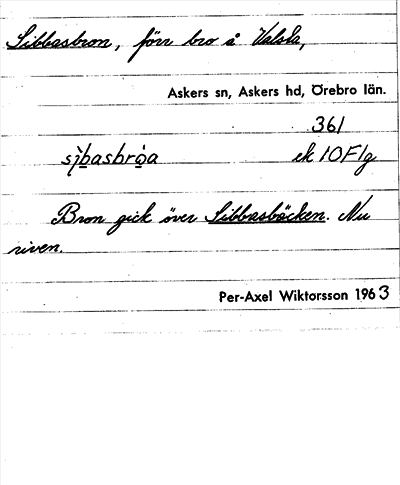 Sibbasbron, förr bro å Valsta,
Askers sn, Askers hd, Örebro län.
361
sìbasbròa ek 10F1g
Bron gick över Sibbasbäcken. Nu
riven.
Per-Axel Wiktorsson 1963